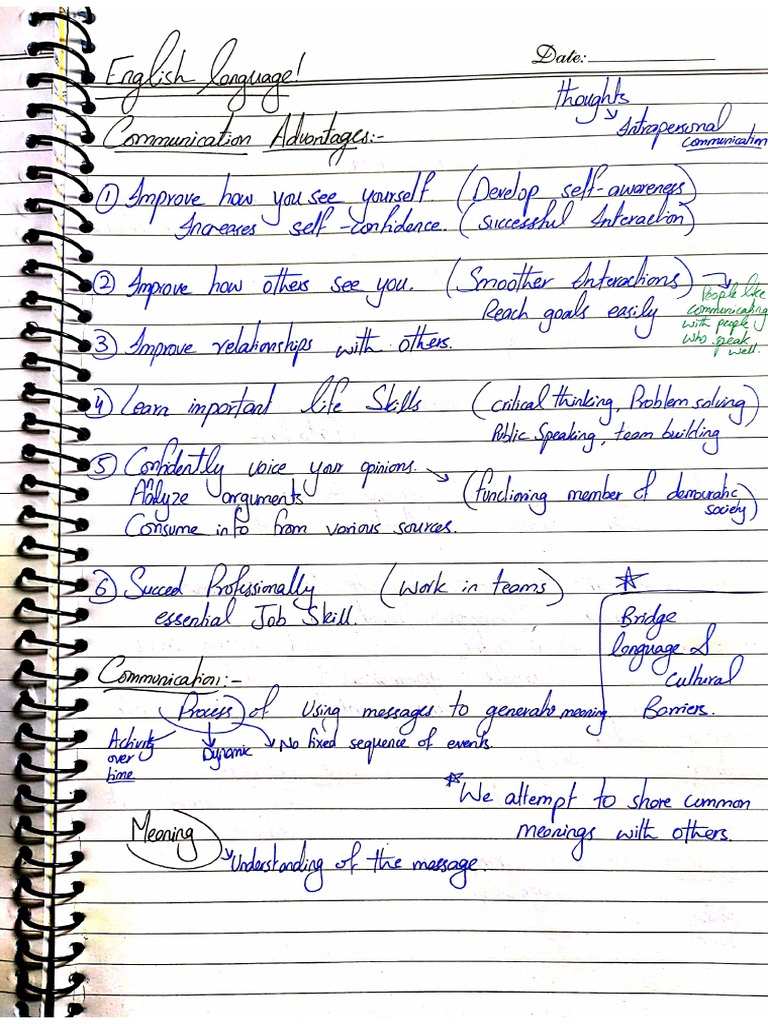 Date:
English language!
thoughts
Intrapersonal
communication
Communication Advantages:-
① Improve how you see yourself (Develop self-awareness)
Increases self-confidence. (Successful Interaction)
② Improve how others see you. (Smoother Interactions)
Reach goals easily
People like
communicating
with people
who speak
well.
③ Improve relationships with others.
④ Learn important life Skills (critical thinking, Problem solving)
Public Speaking, team building
⑤ Confidently voice your opinions.
Analyze arguments (functioning member of democratic
society)
Consume info from various sources.
⑥ Succed Professionally (Work in teams)
essential Job Skill.
Bridge
language &
Cultural
Barriers.
Communication:-
Process of Using messages to generate meaning
Activity
over
time
Dynamic
No fixed sequence of events.
*We attempt to share common
meanings with others.
Meaning
Understanding of the message.